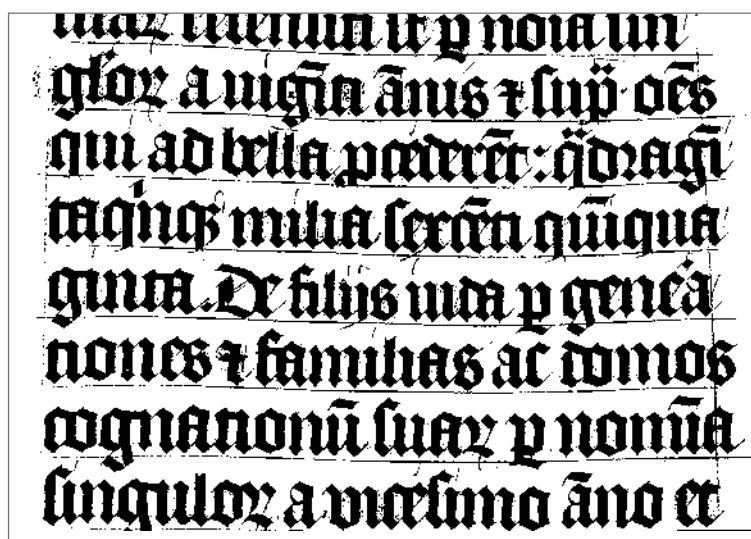 suaꝝ recensiti st ꝑ noia sin
gloꝝ a uigīti ānis ⁊ sup̄ oēs
qui ad bella ꝓcederēt : qͣdragī
taqͥnqꝫ milia sexcēti qūiqua
ginta. De filijs iuda ꝑ genera
tiones ⁊ familias ac domos
cognationū suaꝝ ꝑ nomīa
singuloꝝ a uicesimo āno et